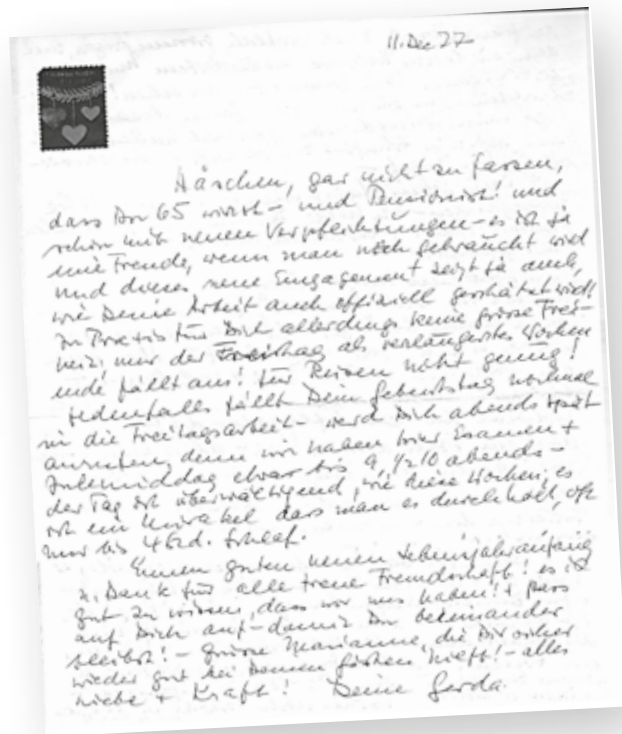 11. Dec 77
Häschen, gar nicht zu fassen,
dass Du 65 wirst – und Pensionist! und
schon mit neuen Verpflichtungen – es ist ja
eine Freude, wenn man noch gebraucht wird
und dieses neue Engagement zeigt ja auch,
wie Deine Arbeit auch offiziell geschätzt wird!
In Praxis für Dich allerdings keine grosse Frei-
heit: nur der Freitag als verlängertes Wochen
ende fällt aus! für Reisen nicht genug!
Jedenfalls fällt Dein Geburtstag nochmal
in die Freitagsarbeit – werd Dich abends spät
anrufen, denn wir haben hier Examen +
Julemiddag etwa bis 9, 1/2 10 abends –
der Tag ist überwältigend, wie diese Wochen; es
ist ein Mirakel dass man es durchhält, oft
nur bis 4 Std. Schlaf.
Einen guten neuen Lebensjahranfang
u. Dank für alle treue Freundschaft! es ist
gut zu wissen, dass wir uns haben! + pass
auf Dich auf – damit Du beieinander
bleibst! – grüsse Marianne, die Dir sicher
wieder gut bei Deinen hilft! – alles
Liebe + Kraft! Deine Gerda.